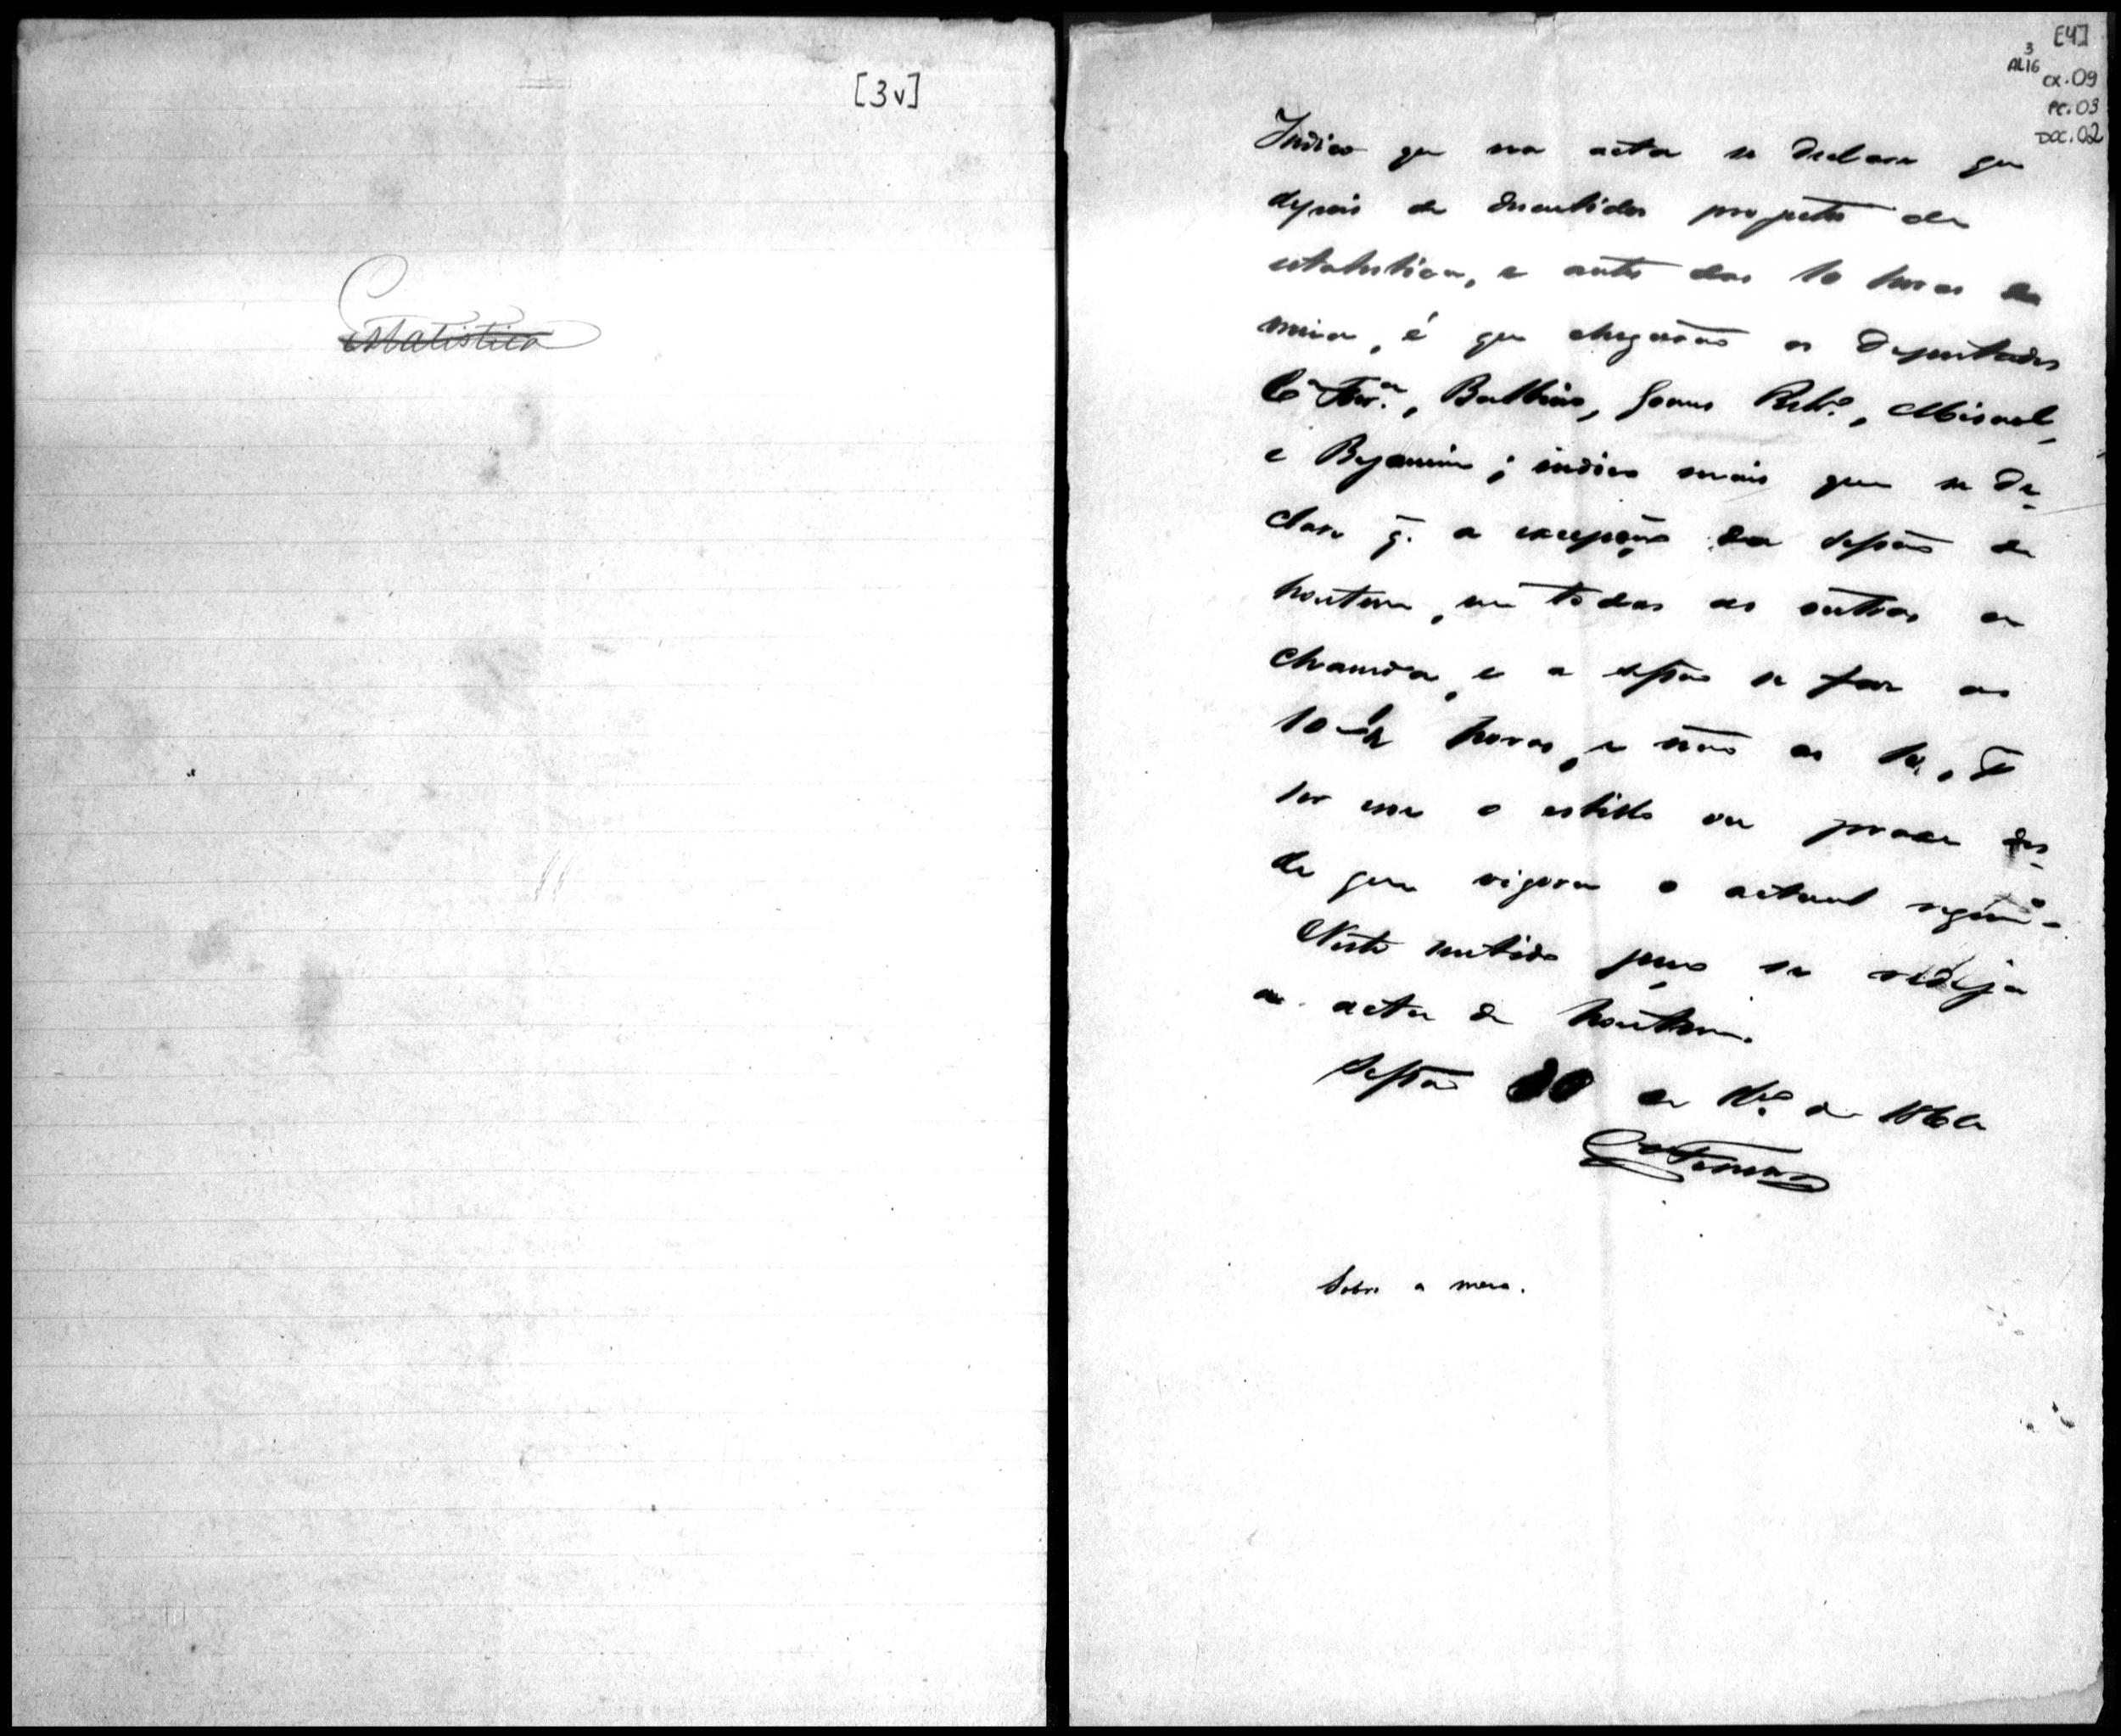 [3v]
Estatistica
[4]
3
AL16
CX.09
PC.03
DOC.02
Indico que na acta se declare que
depois de discutidos projecto de
estatistica, e antes das 10 horas e
meia, é que chegarão os Deputados
Cª Ferrª., Balbino, Gomes Ribº., Misael,
e Bejamim; indico mais que se de-
clare q̃. a excepção da sessão de
hontem, em todas as outras a
chamda, e a sessão se faz as
10 1/2 horas, e não as 10,
ser esse o estillo ou praxe des-
de que vigora o actual regimº-
Neste sentido peço se redija
a acta de hontem.
Sessão 20 de de 186
Sobre a mesa.